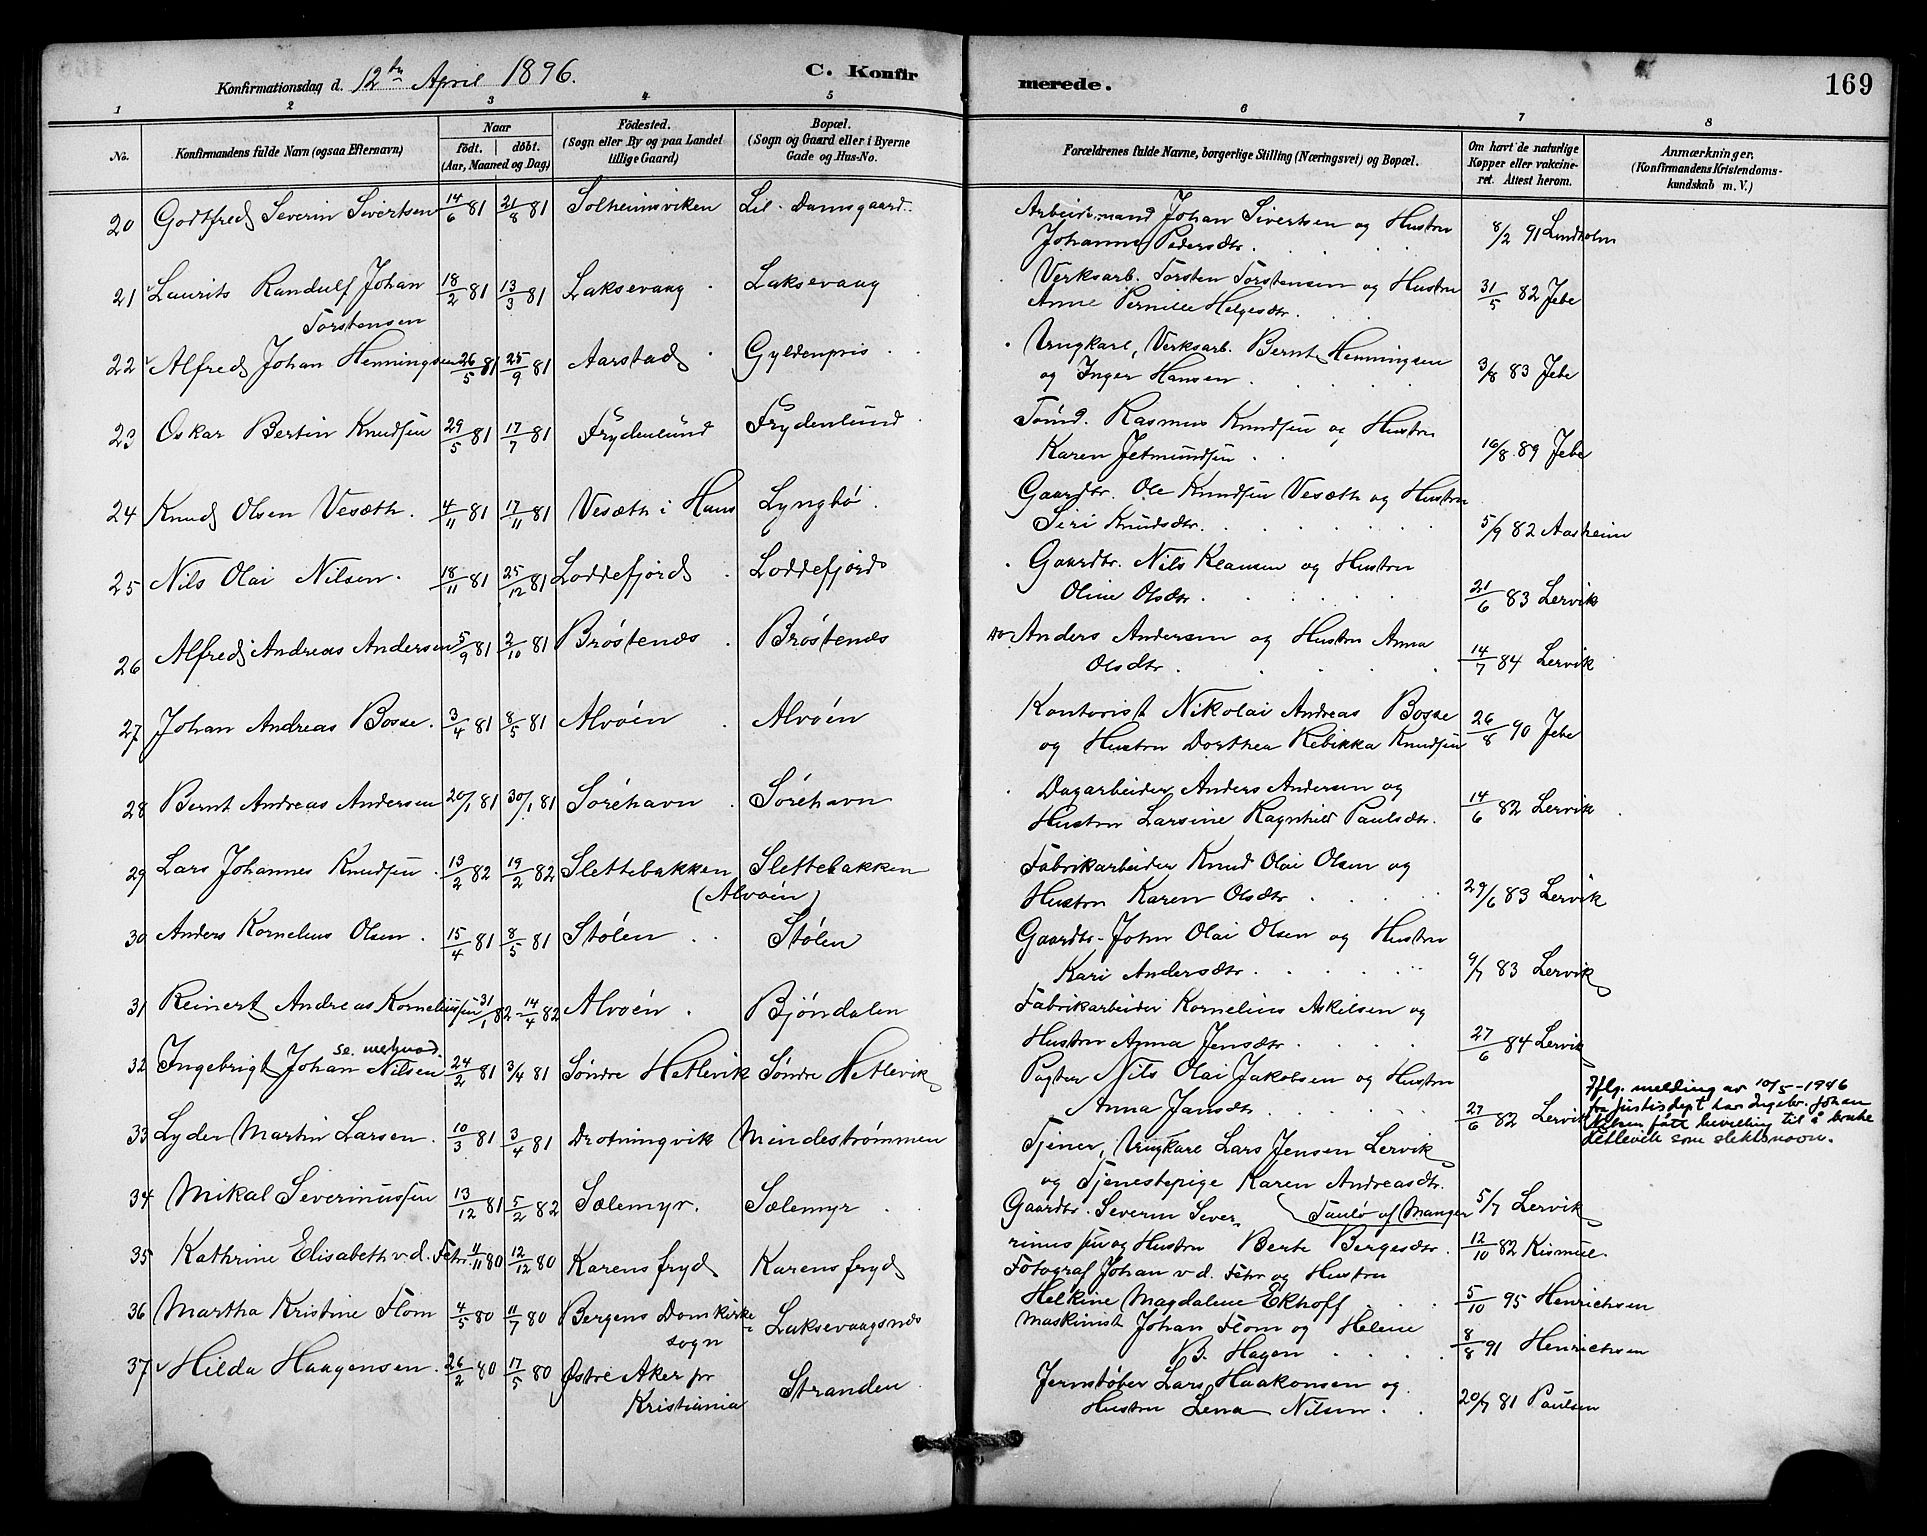 Konfirmationsdag d. 12te April 1896.
C. Konfir
merede.
169
1 2 3 4 5 6 7 8
No.
Konfirmandens fulde Navn (ogsaa Efternavn)
Naar
födt. döbt.
(Aar, Maaned og Dag)
Födested.
(Sogn eller By og paa Landet
tillige Gaard)
Bopæl.
(Sogn og Gaard eller i Byerne
Gade og Hus-No.
Forældrenes fulde Navne, borgerlige Stilling (Næringsvei) og Bopæl.
Om havt de naturlige
Kopper eller vakcine-
ret. Attest herom.
Anmærkninger.
(Konfirmandens Kristendoms-
kundskab m. V.)
20 Godtfred Severin Sivertsen 14/6 81 21/8 81 Solheimsviken Lil. Damsgaard.
Arbeidsmand Johan Sivertsen og Hustru
Johanne Pedersdtr. 8/2 91 Lindholm
21 Laurits Randulf Johan 18/2 81 13/3 81 Laksevaag Laksevaag
Torstensen
Verksarb. Torsten Torstensen og Hustru
Anne Pernille Helgesdtr. 31/5 82 Jebe
22 Alfred Johan Henningsen 26/5 81 25/9 81 Aarstad Gyldenpris
Ungkarl, Verksarb. Bernt Henningsen
og Inger Hansen 3/8 83 Jebe
23 Oskar Bertin Knudsen 29/5 81 17/7 81 Frydenlund Frydenlund
Tömd. Rasmus Knudsen og Hustru
Karen Jetmundsen 16/8 89 Jebe
24 Knud Olsen Vesæth. 4/11 81 17/11 81 Vesæth i Haus Lyngbö
Gaardbr. Ole Knudsen Vesæth og Hustru
Siri Knudsdtr. 5/9 82 Aasheim
25 Nils Olai Nilsen. 18/11 81 25/12 81 Loddefjord Loddefjord
Gaardbr. Nils Klausen og Hustru
Oline Olsdtr. 21/6 83 Lervik
26 Alfred Andreas Andersen 5/9 81 2/10 81 Bröstenæs Bröstenæs
Do Anders Andersen og Hustru Anna
Olsdtr. 14/7 84 Lervik
27 Johan Andreas Bosse. 3/4 81 8/5 81 Alvöen Alvöen
Kontorist Nikolai Andreas Bosse
og Hustru Dorthea Rebikka Knudsen 26/8 90 Jebe
28 Bernt Andreas Andersen 20/1 81 30/1 81 Söréhavn Söréhavn
Dagarbeider Anders Andersen og
Hustru Larsine Ragnhild Paulsdtr. 14/6 82 Lervik
29 Lars Johannes Knudsen 13/2 82 19/2 82 Slettebakken Slettebakken
(Alvöen)
Fabrikarbeider Knud Olai Olsen og
Hustru Karen Olsdtr 29/6 83 Lervik
30 Anders Kornelius Olsen. 15/4 81 8/5 81 Stölen Stölen
Gaardbr. John Olai Olsen og Hustru
Kari Andersdtr. 9/7 83 Lervik
31 Reinert Andreas Korneliussen 31/1 82 14/4 82 Alvöen. Björndalen
Fabrikarbeider Kornelius Askilsen og
Hustru Anna Jensdtr. 27/6 84 Lervik
se. merknad.
32 Ingebrigt Johan Nilsen 24/2 81 3/4 81 Söndre Hetlevik Söndre Hetlevik
Pagter Nils Olai Jakobsen og Hustru
Anna Jansdtr 27/6 82 Lervik
Iflg. melding av 10/5-1946
fra Justisdept har Ingebr. Johan
Nilsen fått bevilling til å bruke
Hetlevik som slektsnavn.
33 Lyder Martin Larsen. 10/3 81 3/4 81 Drotningvik Mindeströmmen
Tjener, Ungkarl Lars Jensen Lervik
og Tjenestepige Karen Andreasdtr.
af Manger 5/7 Lervik
34 Mikal Severinussen 13/12 81 5/2 82 Sælemyr. Sælemyr
Gaardbr. Severin Seve-
rinussen og Hustru Berte Bergesdtr. 12/10 82 Kismul.
35 Kathrine Elisabeth v.d. Fehr 4/11 80 12/12 80 Karensfryd Karensfryd
Fotograf Johan v.d. Fehr og Hustru
Helkine Magdalene Ekhoff 5/10 95 Henrichsen
36 Martha Kristine Flom 4/5 80 11/7 80 Bergens Domkirke- Laksevaagsnæs
sogn
Maskinist Johan Flom og Helene
B. Hagen 8/8 91 Henrichsen
37 Hilda Haagensen. 26/2 80 17/5 80 Østre Aker pr Stranden
Kristiania
Jernstöber Lars Haakonsen og
Hustru Lena Nilsen. 20/7 81 Paulsen